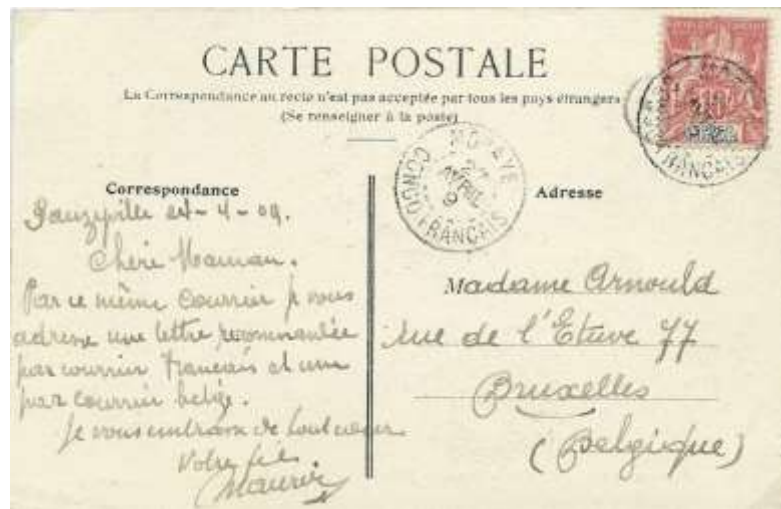 CARTE POSTALE
La Correspondance au recto n'est pas acceptée par tous les pays étrangers
(Se renseigner à la poste)
MOBAYE
AVRIL
CONGO FRANÇAIS
FRANÇAIS
10
Correspondance
4 - 09.
Chère Maman.
Par ce même courrier je vous
adresse une lettre recommandée
par courrier français et une
par courrier belge.
Je vous embrasse de tout cœur
Votre fils
Maurice
Adresse
Madame Arnould
rue de l'Etuve 77
Bruxelles
(Belgique)